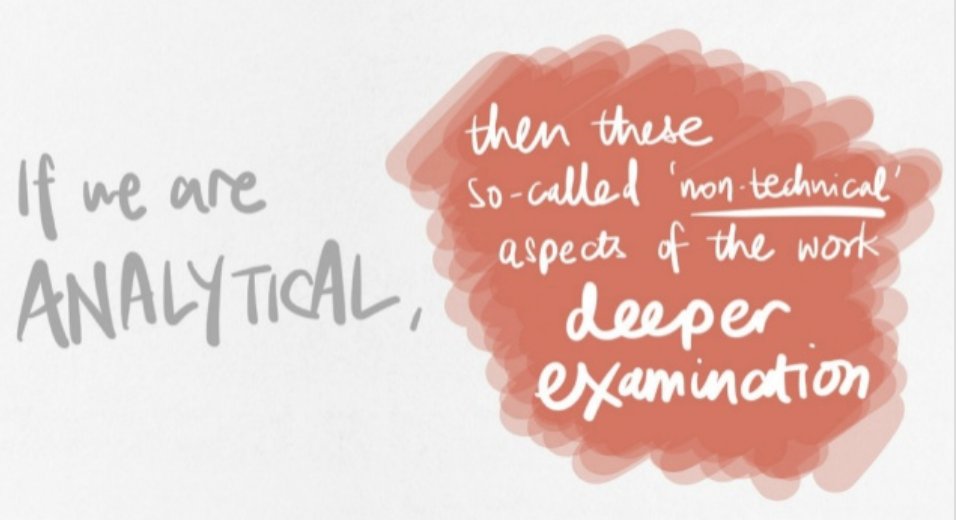 If we are
ANALYTICAL,
then these
so-called 'non-technical'
aspects of the work
deeper
examination